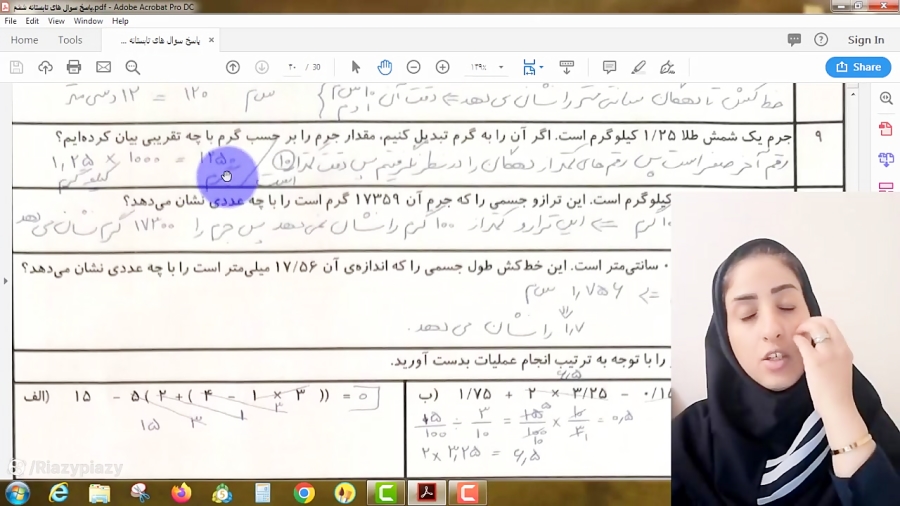 پاسخ سوال های تابستانه ششم.pdf - Adobe Acrobat Pro DC
File Edit View Window Help
Home Tools پاسخ سوال های تابستانه ... × Sign In
۳۰ / 30 ۱۴۹٪ Share
خط کش تا نهایتاً سانتی متر را نشان می دهد
س م ۱۲۰ = ۱۲ دسی متر
۹ جرم یک شمش طلا ۱/۲۵ کیلوگرم است. اگر آن را به گرم تبدیل کنیم، مقدار جرم را بر حسب گرم با چه تقریبی بیان کرده‌ایم؟
۱,۲۵ × ۱۰۰۰ = ۱۲۵۰
کیلوگرم
رقم آخر صفر است پس
است
کیلوگرم است. این ترازو جسمی را که جرم آن ۱۷۳۵۹ گرم است را با چه عددی نشان می‌دهد؟
این ترازو کمتر از ۱۰۰ گرم را نشان نمی دهد پس جرم را ۱۷۳۰۰ گرم نشان می دهد
سانتی‌متر است. این خط‌کش طول جسمی را که اندازه‌ی آن ۱۷/۵۶ میلی‌متر است را با چه عددی نشان می‌دهد؟
۱,۷۵۶ س م
۱,۷ را نشان می دهد.
را با توجه به ترتیب انجام عملیات بدست آورید.
الف) ۱۵ - ۵(۲+(۴ - ۱ × ۳)) = ۰
۱۵ ۳ ۱ ۳
ب) ۱/۷۵ + ۲ × ۳/۲۵ - ۰/۱۵
۶,۵
۲ × ۳,۲۵ = ۶,۵
/Riazyplazy